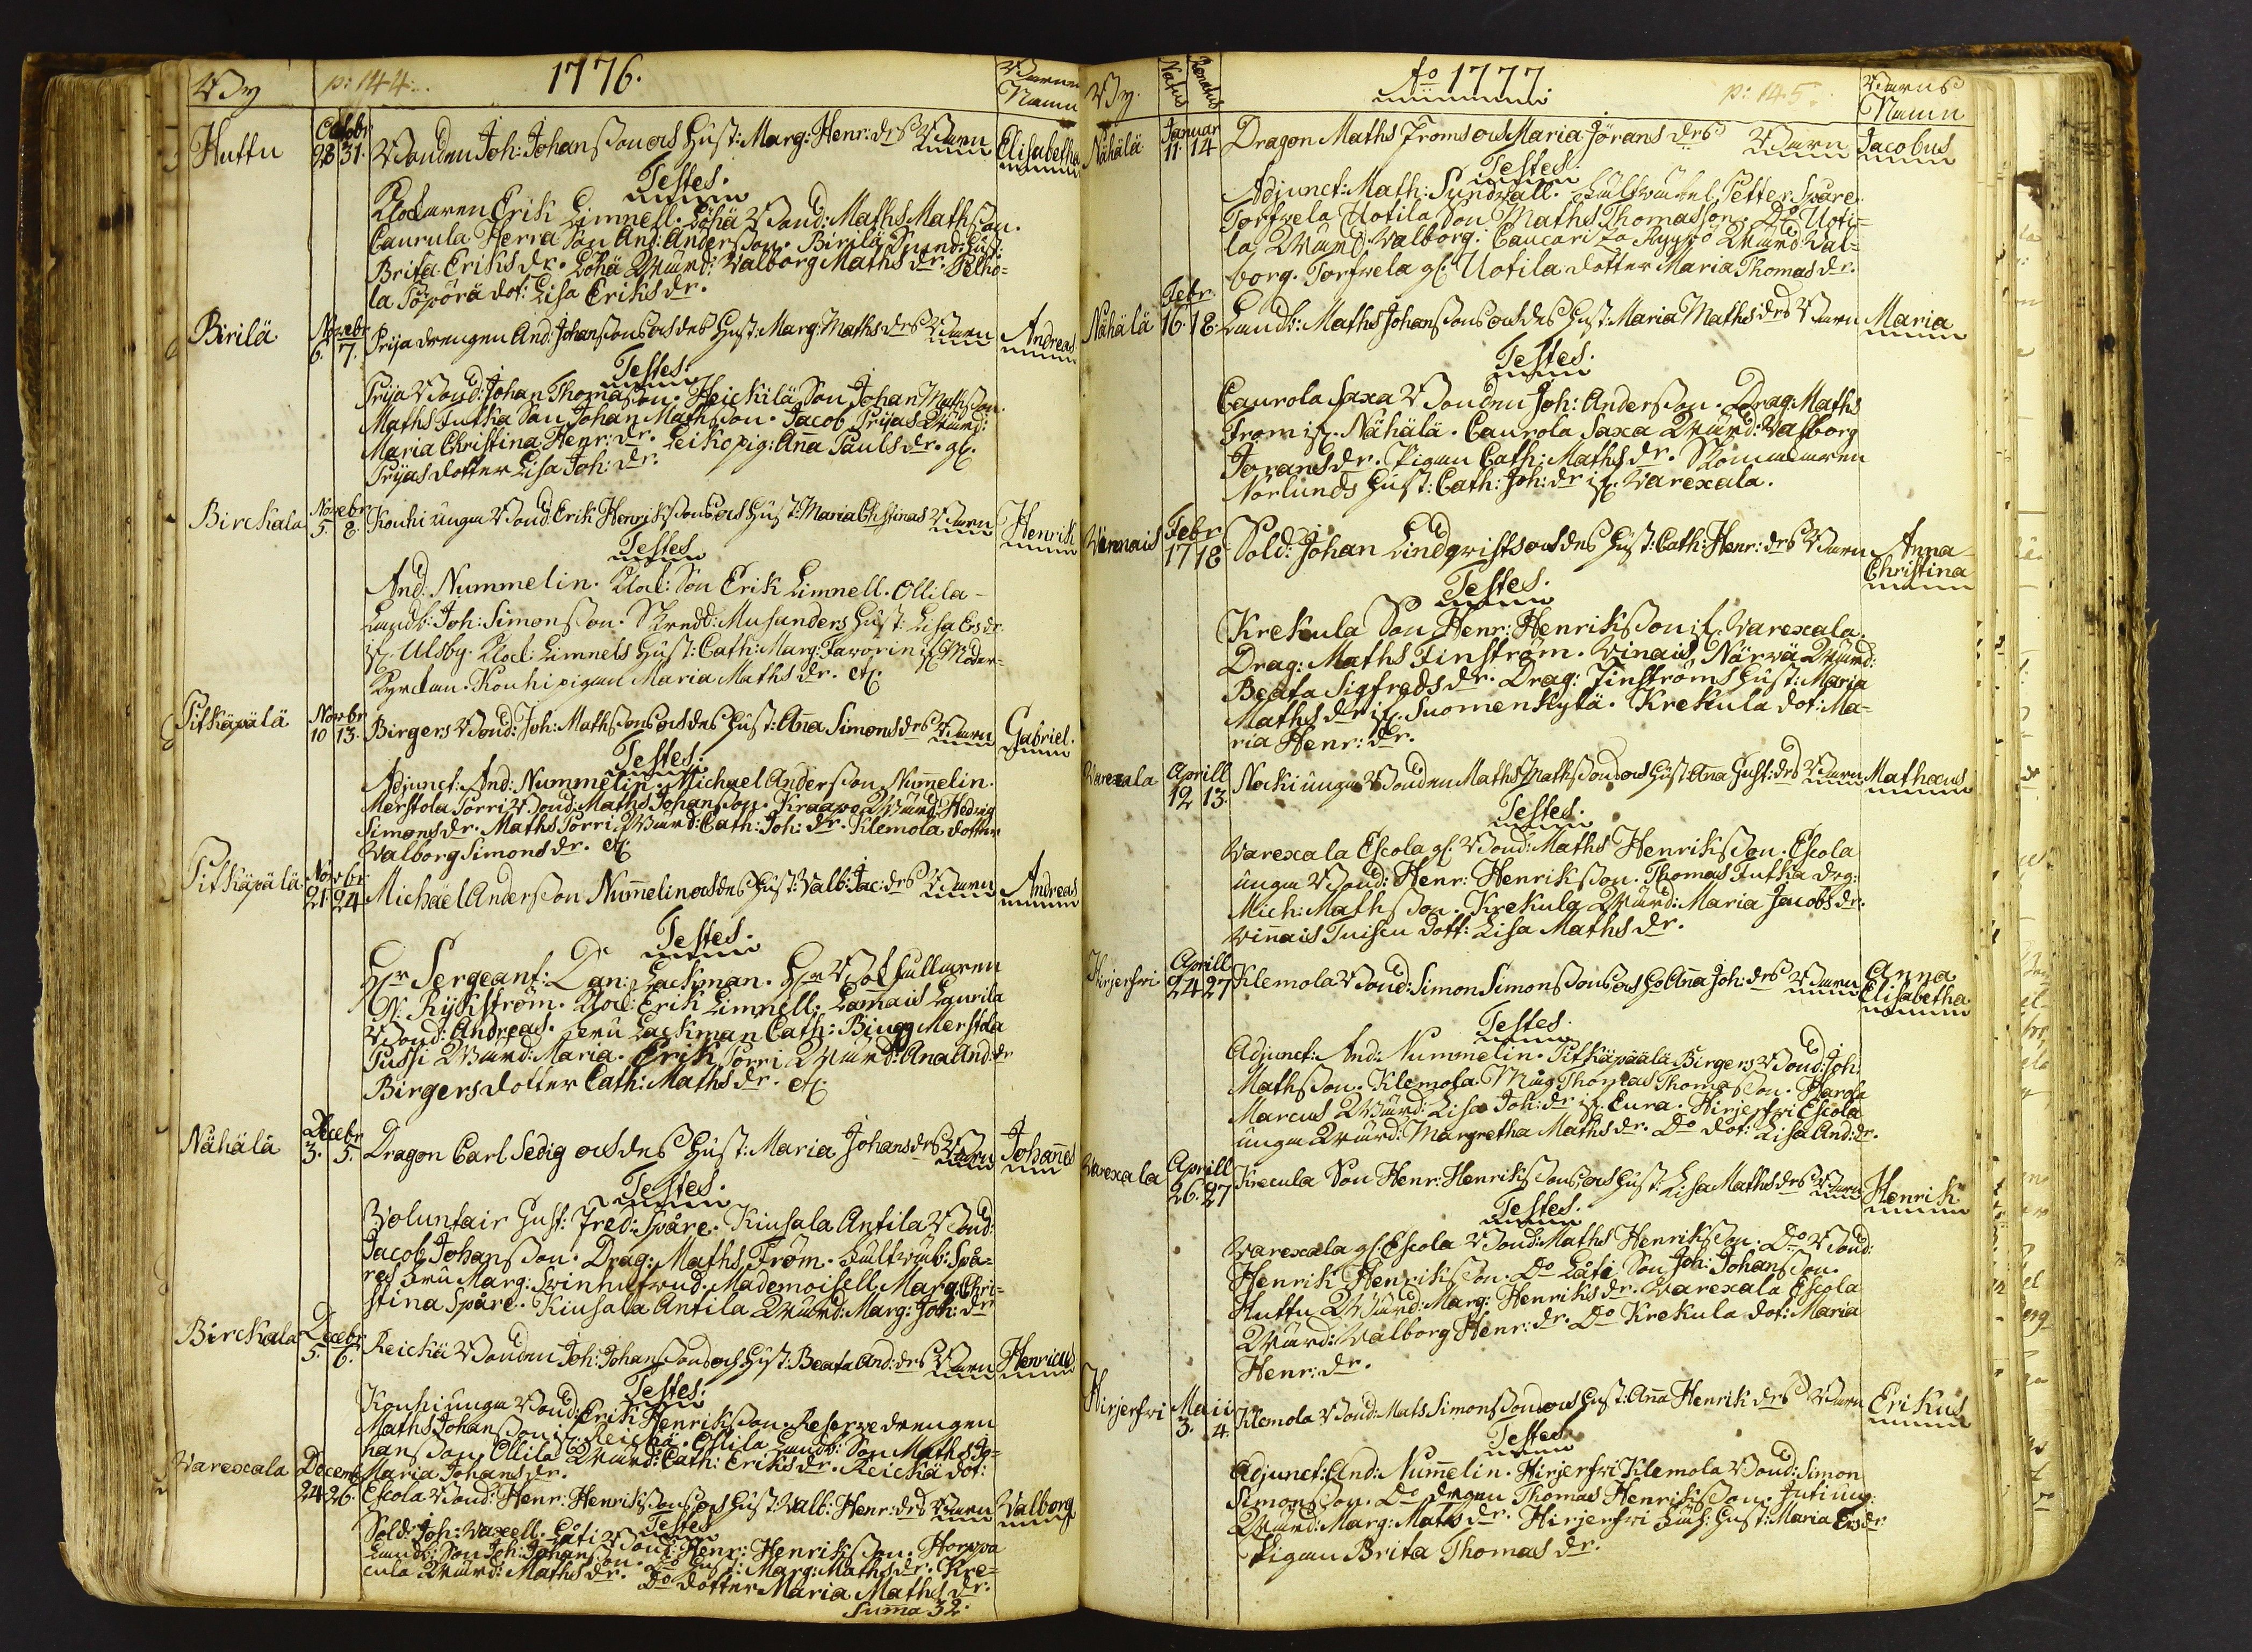 By p: 144. 1776. Barnens Namn
Huttu Octobr 28 31. Bonden Joh: Johanssons och Hust: Marg: Henr: drs Barn Elisabetha
Testes.
Klockaren Erik Limnell. Löhä Bond: Maths Mathsson.
Caurula Herra Son And: Andersson. Birilä Hust:
Brita Eriksdr. Löhä Wärd: Valborg Maths dr. Pelho=
la Söpörä dot: Lisa Eriks dr.
Birilä Novebr 6. 7. Prija drengen And: Johanssons och des Hust: Marg: Maths drs Barn Andreas
Testes.
Prija Bond: Johan Thomasson. Heickilä Son Johan Mathsson.
Maths Tutka Son Johan Mathsson. Jacob Prijas Wärd:
Maria Christina Henr: dr. Leiko pig: Aña Pauls dr. gl.
Prijas dotter Lisa Joh: dr.
Birckala Novebr 5. 8. Kouhi unga Bond: Erik Henrikssons och Hust: Maria Christinas Barn Henrik
Testes
And: Nummelin. Klock: Son Erik Limnell. Ollila
Landb: Joh: Simonsson. Skredd: Musanders Hust: Lisa Ers dr.
if. Ulsby. Klock: Limnels Hust: Cath: Marg: Favorin if. Moder=
Kyrckan. Kouhi pigan Maria Maths dr. etc.
Pitkäpälä Novbr 10 13. Birgers Bond: Joh: Mathssons och des Hust: Aña Simons drs Barn Gabriel.
Testes.
Adjunct: And: Nummelin. Michael Andersson Num̃elin.
Merstola Porri Bond: Maths Johansson. Kraapo Wärd: Hedvig
Simons dr. Maths Porri Wärd: Cath: Joh: dr. Klemola dotter
Valborg Simons dr. etc.
Pitkäpälä Novbr 21. 24 Michaël Andersson Num̃elin och des Hust: Valb: Jac: drs Barn Andreas
Testes.
Hr Sergeant: Dan: Lackman. Hr Bokhållaren
N: Rijkström. Klock: Erik Limnell. Lamais Laurila
Bond: Andreas. Fru Lackman Cath: Bjugg Merstola
Pussi Wärd: Maria. Erik Porri Wärd: Ana And: dr
Birgers dotter Cath: Maths dr. etc.
Nähälä Decebr 3. 5. Dragon Carl Sedig och des Hust: Maria Johans drs Barn Johañes
Testes.
Voluntair Gust: Fred: Spåre. Kiusala Antila Bond:
Jacob Johansson. Drag: Maths From. Fältväb: Spå=
res Fru Marg: Svinhufvud. Mademoisell. Marg: Chri=
stina Spåre. Kiusala Antila Wärd: Marg: Joh: dr
Birckala Decebr 5. 6. Reickä Bonden Joh: Johanssons och Hust: Beata And: drs Barn Henricus
Testes.
Kouhi unga Bond: Erik Henriksson. Reserve drengen
Maths Johansson if. Reickä. Ollila Landb: Son Maths Jo=
hansson. Ollila Wärd: Cath: Eriks dr. Reickä dot:
Maria Johans dr.
Varexala Decemb 24 26. Escola Bond: Henr: Henrikssons och Hust: Valb: Henr: drs Barn Valborg
Testes
Sold: Joh: Vaxell. Läti Bond: Henr: Henriksson. Horppa
Landb: Son Joh: Johansson. Do Hust: Marg: Maths dr. Kre=
cula Wärd: Maths dr. Do dotter Maria Maths dr.
Sum̃a 32.
By. Natus Renatus Ao 1777 p: 145. Barns Namn
Nähälä Januar 11. 14 Dragon Maths Froms och Maria Jörans drs Barn Jacobus
Testes.
Adjunct: Math: Sundvall. Fältväbel Petter Spåre.
Torfvela Uotila Son Maths Thomasson. Do Uoti=
la Wärd: Valborg. Caucarista Ryypö Wärd: Val=
borg. Torfvela gl. Uotila dotter Maria Thomas dr.
Nähälä Febr. 16. 18. Landb: Maths Johanssons och des Hust: Maria Maths drs Barn Maria
Testes.
Caurola Saxa Bonden Joh: Andersson. Drag: Maths
From if. Nähälä. Caurola Saxa Wärd: Valborg
Jörans dr. Pigan Cath: Maths dr. Skomakaren
Norlunds Hust: Cath: Joh: dr if. Varexala.
Vännais Febr 17 18 Sold: Johan Lindqvists och des Hust: Cath: Henr: drs Barn Anna Christina
Testes.
Krekula Son Henr: Henriksson if. Varexala.
Drag: Maths Finström. Vinais Närvä Wärd:
Beata Sigfreds dr. Drag: Finströms Hust: Maria
Maths dr if. Suomenkylä. Krekula dot: Ma=
ria Henr: dr.
Varexala Aprill 12 13. Nocki unga Bonden Maths Mathssons och Hust: Aña Just: drs Barn Mathæus
Testes.
Varexala Escola gl. Bond: Maths Henriksson. Escola
unga Bond: Henr: Henriksson. Thomas Tutka drg:
Mich: Mathsson. Krekula Wärd: Maria Jacobs dr.
Viñais Tuiscu dott: Lisa Maths dr.
Hirjerfvi Aprill 24 27 Klemola Bond: Simon Simonssons och Ho Aña Joh: drs Barn Anna Elisabetha
Testes.
Adjunct: And: Nummelin. Pitkäpäälä Birgers Bond: Joh:
Mathsson. Klemola Måg Thomas Thomasson. Harola
Marcus Wärd: Lisa Joh: dr if. Eura. Hirjerfvi Escola
unga Wärd: Margretha Maths dr. Do dot: Lisa And: dr.
Varexala Aprill 26. 27 Krecula Son Henr: Henrikssons och Hust: Lisa Maths drs Barn Henrik
Testes.
Varexala gl. Escola Bond: Maths Henriksson. Do Bond:
Henrik Henriksson. Do Läti Son Joh: Johansson.
Huttu Wärd: Marg: Henriks dr. Varexala Escola
Wärd: Valborg Henr: dr. Do Krekula dot: Maria
Henr: dr.
Hirjerfvi Maii 3. 4. Klemola Bond: Mats Simonssons och Hust: Aña Henrik drs Barn Erikus
Testes
Adjunct: And: Num̃elin. Hirjerfvi Klemola Bond: Simon
Simonsson. Do drgen Thomas Henriksson. Juti ung:
Wärd: Marg: Maths dr. Hirjerfvi Hust: Maria Ers dr
Pigan Brita Thomas dr.